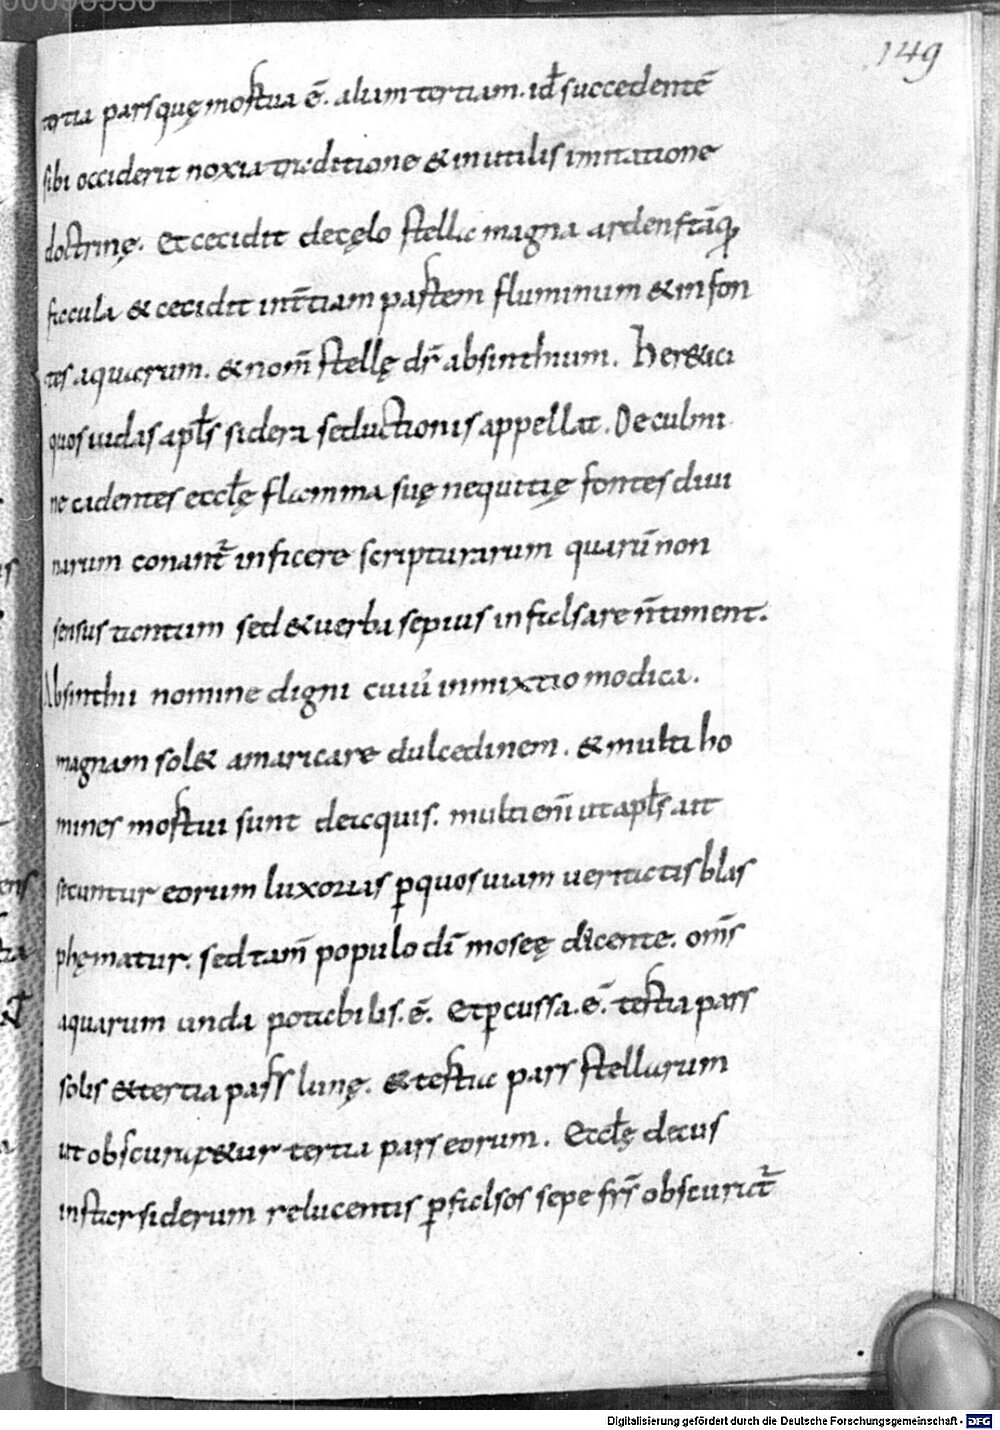 149
tertia pars quę mortua ē. aliam tertiam. id̄ succedentē
sibi occiderit noxia traditione & inutilis imitatione
doctrinę. Et cecidit de cęlo stella magna ardens tāq̨
faccula & cecidit in t̄tiam partem fluminum & in fon
tes aquarum. & nom̄ stellę dr̄ absinthium. Her&ici
quos iudas apl̄s sidera seductionis appellat. De culmi
ne cadentes eccl̄ę flamma suę nequitię fontes diui
narum conant̄ inficere scripturarum quarū non
sensus tantum sed & uerba sepius infalsare n̄ timent.
Absinthii nomine digni cuiū inmixtio modica.
magnam sol& amaricare dulcedinem. & multi ho
mines mortui sunt de acquis. multi enī ut apl̄s ait
secuntur eorum luxorias p̱ quos uiam ueritatis blas
phęmatur. sed tam̄ populo dī moseę dicente. om̄s
aquarum unda potabilis. ē. Et p̱cussa. ē. tertia pars
solis & tertia pars lunę. & tertia pars stellarum
ut obscurar&ur tertia pars eorum. Eccl̄ę decus
instar siderum relucentis p̱ falsos sepe fr̄s obscurat̄
Digitalisierung gefördert durch die Deutsche Forschungsgemeinschaft - DFG